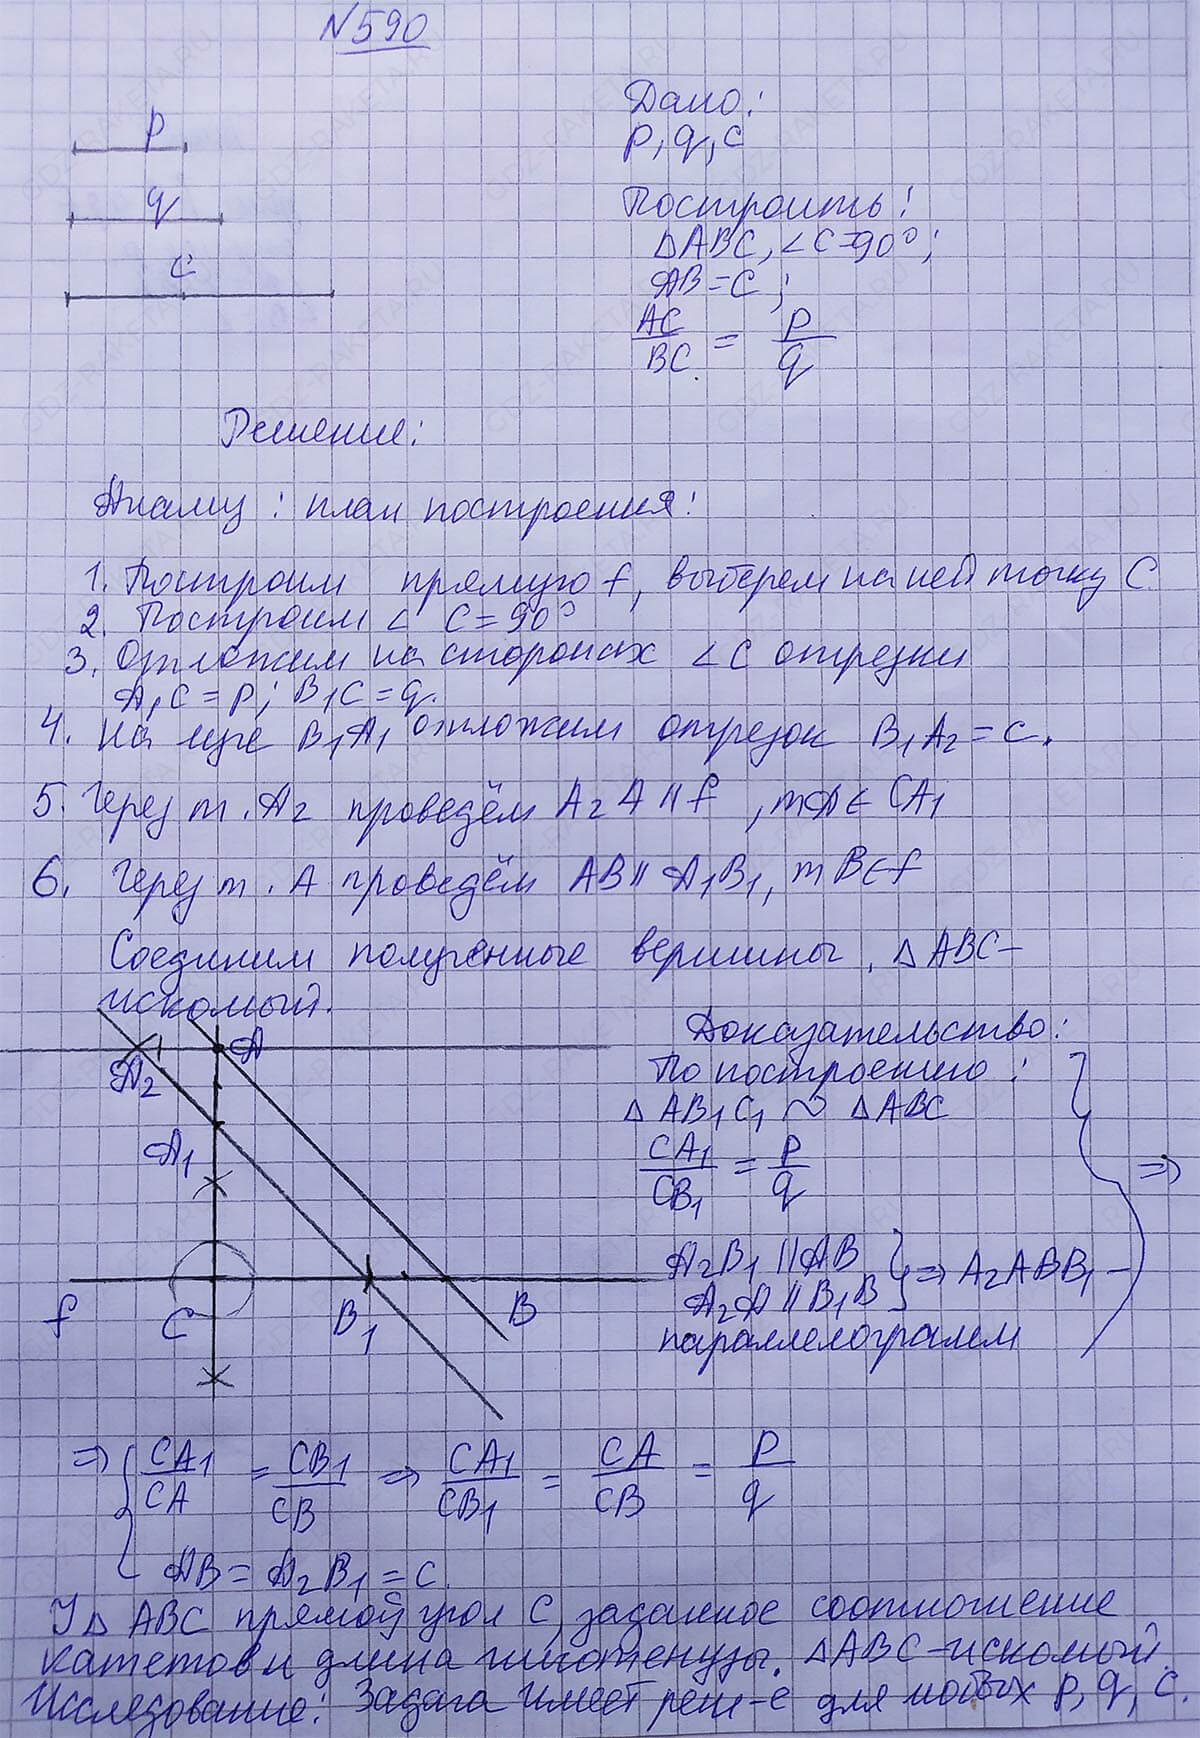 N590
p
q
c
Дано:
p, q, c
Построить:
△ABC, ∠C=90°;
AB=C;
AC/BC = p/q
Решение:
Анализ: план построения:
1. Построим прямую f, выберем на ней точку C.
2. Построим ∠ C=90°
3. Отложим на сторонах ∠C отрезки
A₁C=p; B₁C=q.
4. На луче B₁A₁ отложим отрезок B₁A₂=c.
5. Через т. A₂ проведём A₂A ∥ f, т A ∈ CA₁
6. Через т. A проведём AB ∥ A₁B₁, т B∈f
Соединим полученные вершины. △ABC–
искомый.
A₂
A
A₁
f
C
B₁
B
Доказательство:
По построению:
△AB₁C₁ ~ △ABC
CA₁/CB₁ = p/q ⇒
A₂B₁ ∥ AB
A₂A ∥ B₁B } ⇒ A₂ABB₁ –
параллелограмм
⇒ { CA₁/CA = CB₁/CB ⇒ CA₁/CB₁ = CA/CB = p/q
AB = A₂B₁ = c.
У △ ABC прямой угол C, заданное соотношение
катетов и длина гипотенузы. △ABC–искомый.
Исследование: Задача имеет реш-е для любых p, q, c.
GDZ-RAKETA.RU